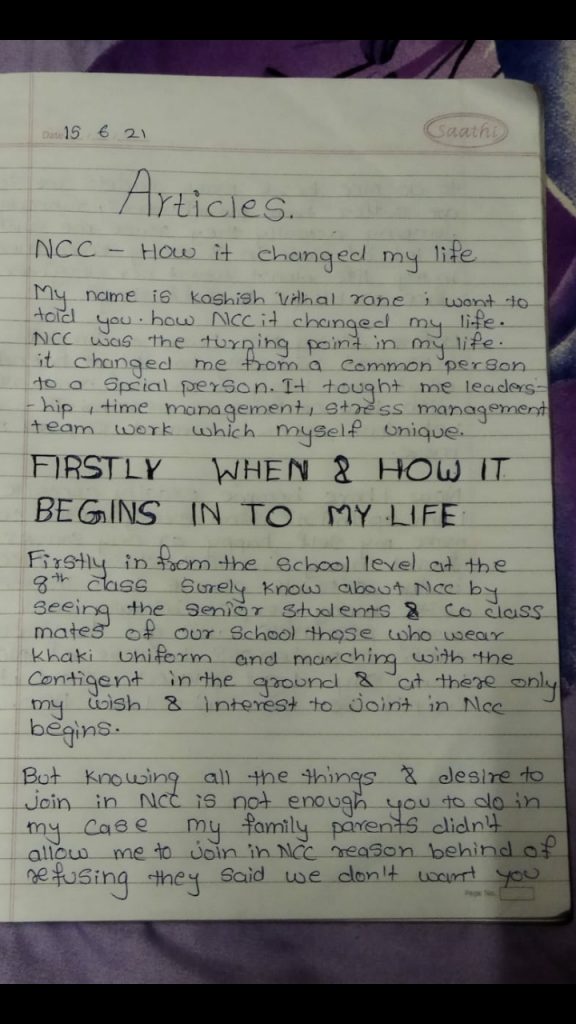 Date 15 6 21
saathi
Articles.
NCC - How it changed my life
My name is koshish Vithal rane i want to
told you. how NCC it changed my life.
NCC was the turning point in my life.
it changed me from a common person
to a spcial person. It tought me leaders-
-hip, time management, stress management
team work which myself unique.
FIRSTLY WHEN & HOW IT
BEGINS IN TO MY LIFE
Firstly in from the school level at the
8th class surely know about Ncc by
seeing the senior students & co class
mates of our school those who wear
khaki uniform and marching with the
contigent in the ground & at there only
my wish & interest to joint in Ncc
begins.
But knowing all the things & desire to
join in NCC is not enough you to do in
my case my family parents didn't
allow me to join in NCC reason behind of
refusing they said we don't want you
Page No.